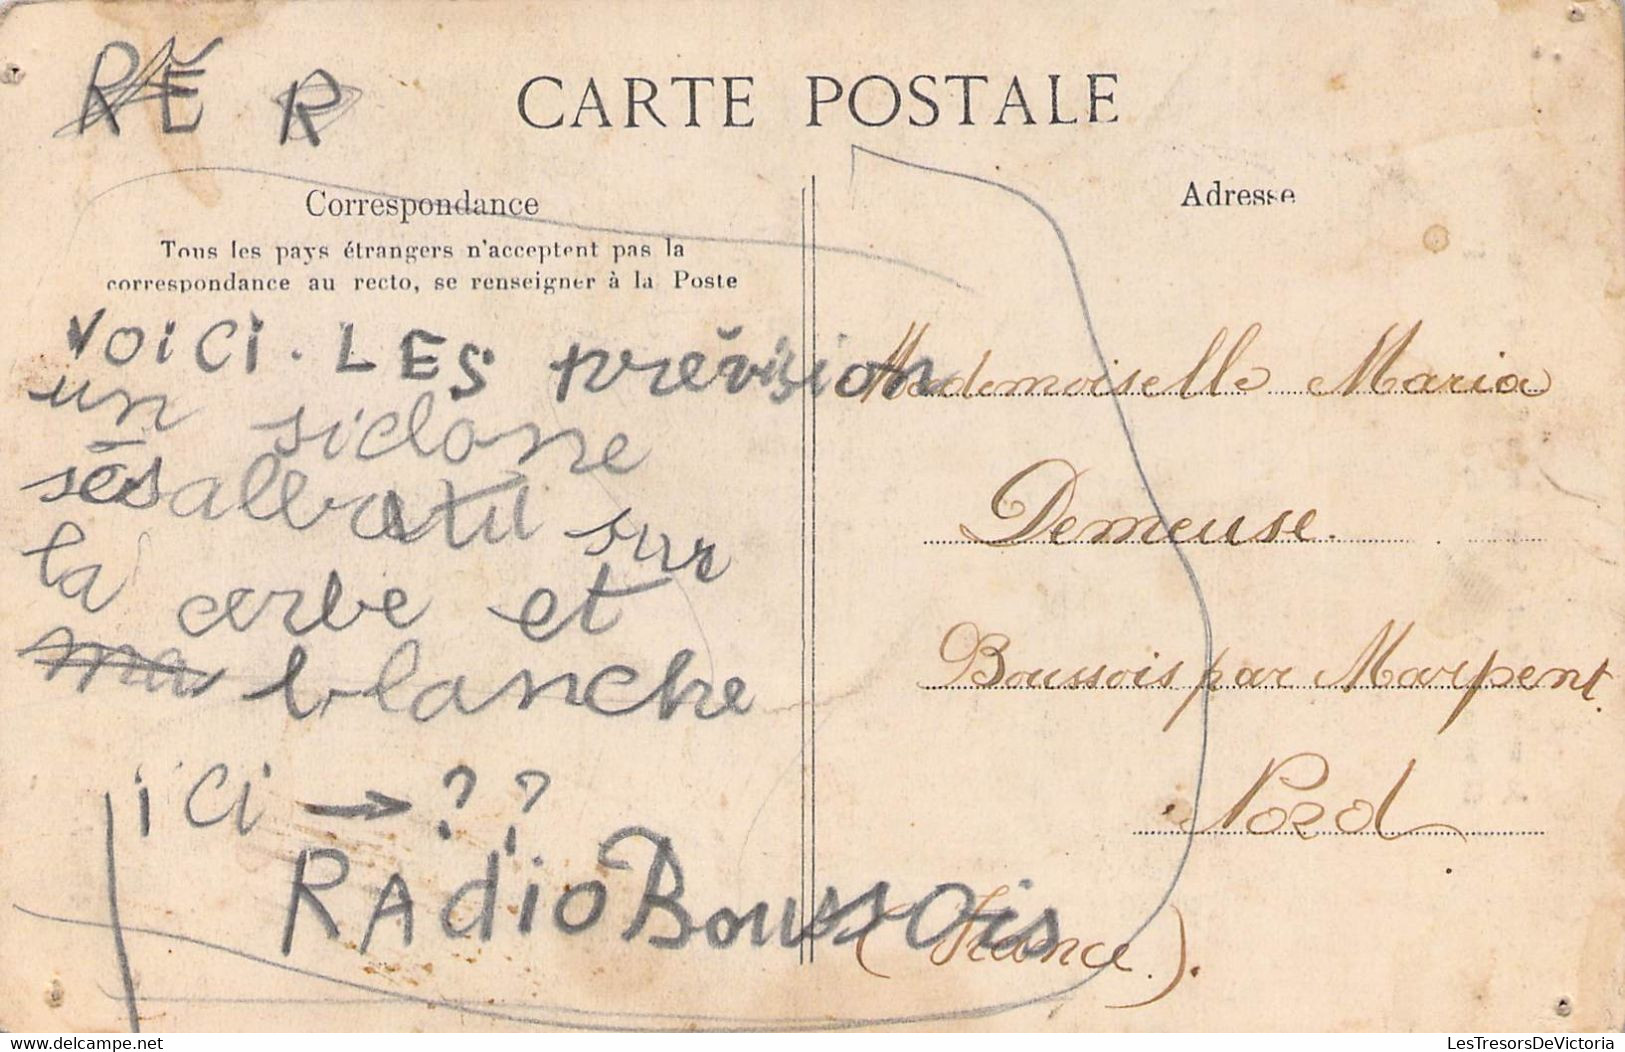 RÉ R
CARTE POSTALE
Correspondance
Tous les pays étrangers n'acceptent pas la
correspondance au recto, se renseigner à la Poste
VOiCi. LES prévision
un siclone
sésalbatu sur
la cerbe et
blanche
iCi → ? ?
RAdio Boussois
Adresse
Mademoiselle Maria
Demeuse.
Boussois par Marpent.
Nord
(France).
LesTresorsDeVictoria